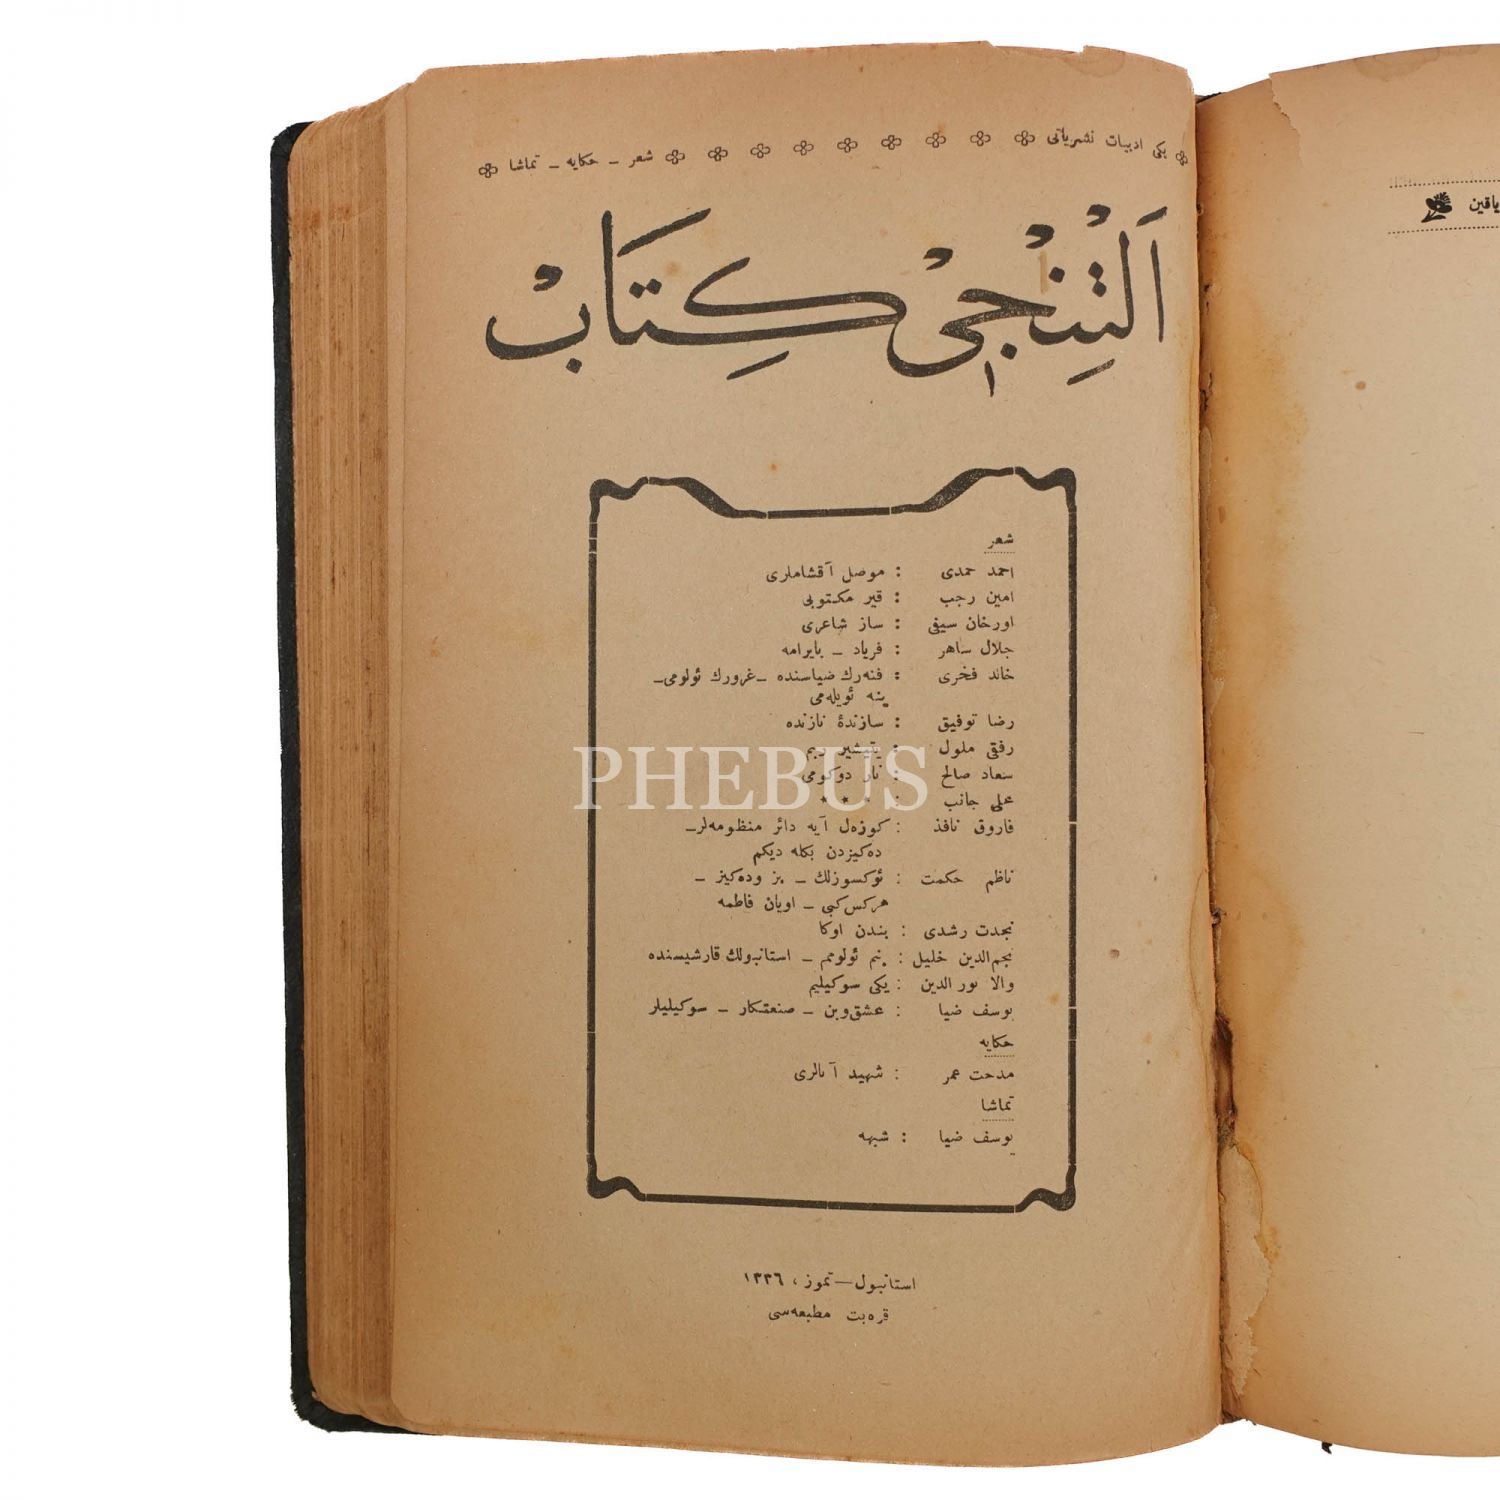 یکی ادبیات نشریاتی شعر ـ حکایه ـ تماشا
اَلْتِنْجیْ کِتَابْ
شعر
احمد حمدی : موصل آقشاملری
امین رجب : قیر مکتوبی
اورخان سیفی : ساز شاعری
جلال ساهر : فریاد ـ بایرامه
خالد فخری : فنه‌رك ضیاسنده ـ غرورك ئولومی ـ
ینه ئویله‌می
رضا توفیق : سازندۀ نازنده
رفقی ملول :
سعاد صالح : دوکومی
علی جانب : * * *
فاروق نافذ : کوزه‌ل آیه دائر منظومه‌لر ـ
ده‌کیزدن بکله دیکم
ناظم حکمت : ئوکسوزلك ـ بز وده‌کیز ـ
هرکس‌کبی ـ اویان فاطمه
نجدت رشدی : بندن اوکا
نجم‌الدین خلیل : بنم ئولومم ـ استانبولك قارشیسنده
والا نور الدین : یکی سوکیلیم
یوسف ضیا : عشق‌وبن ـ صنعتکار ـ سوکیلیلر
حکایه
مدحت عمر : شهید آنالری
تماشا
یوسف ضیا : شبهه
استانبول — تموز ، ١٣٣٦
قره‌بت مطبعه‌سی
یاقین
PHEBUS